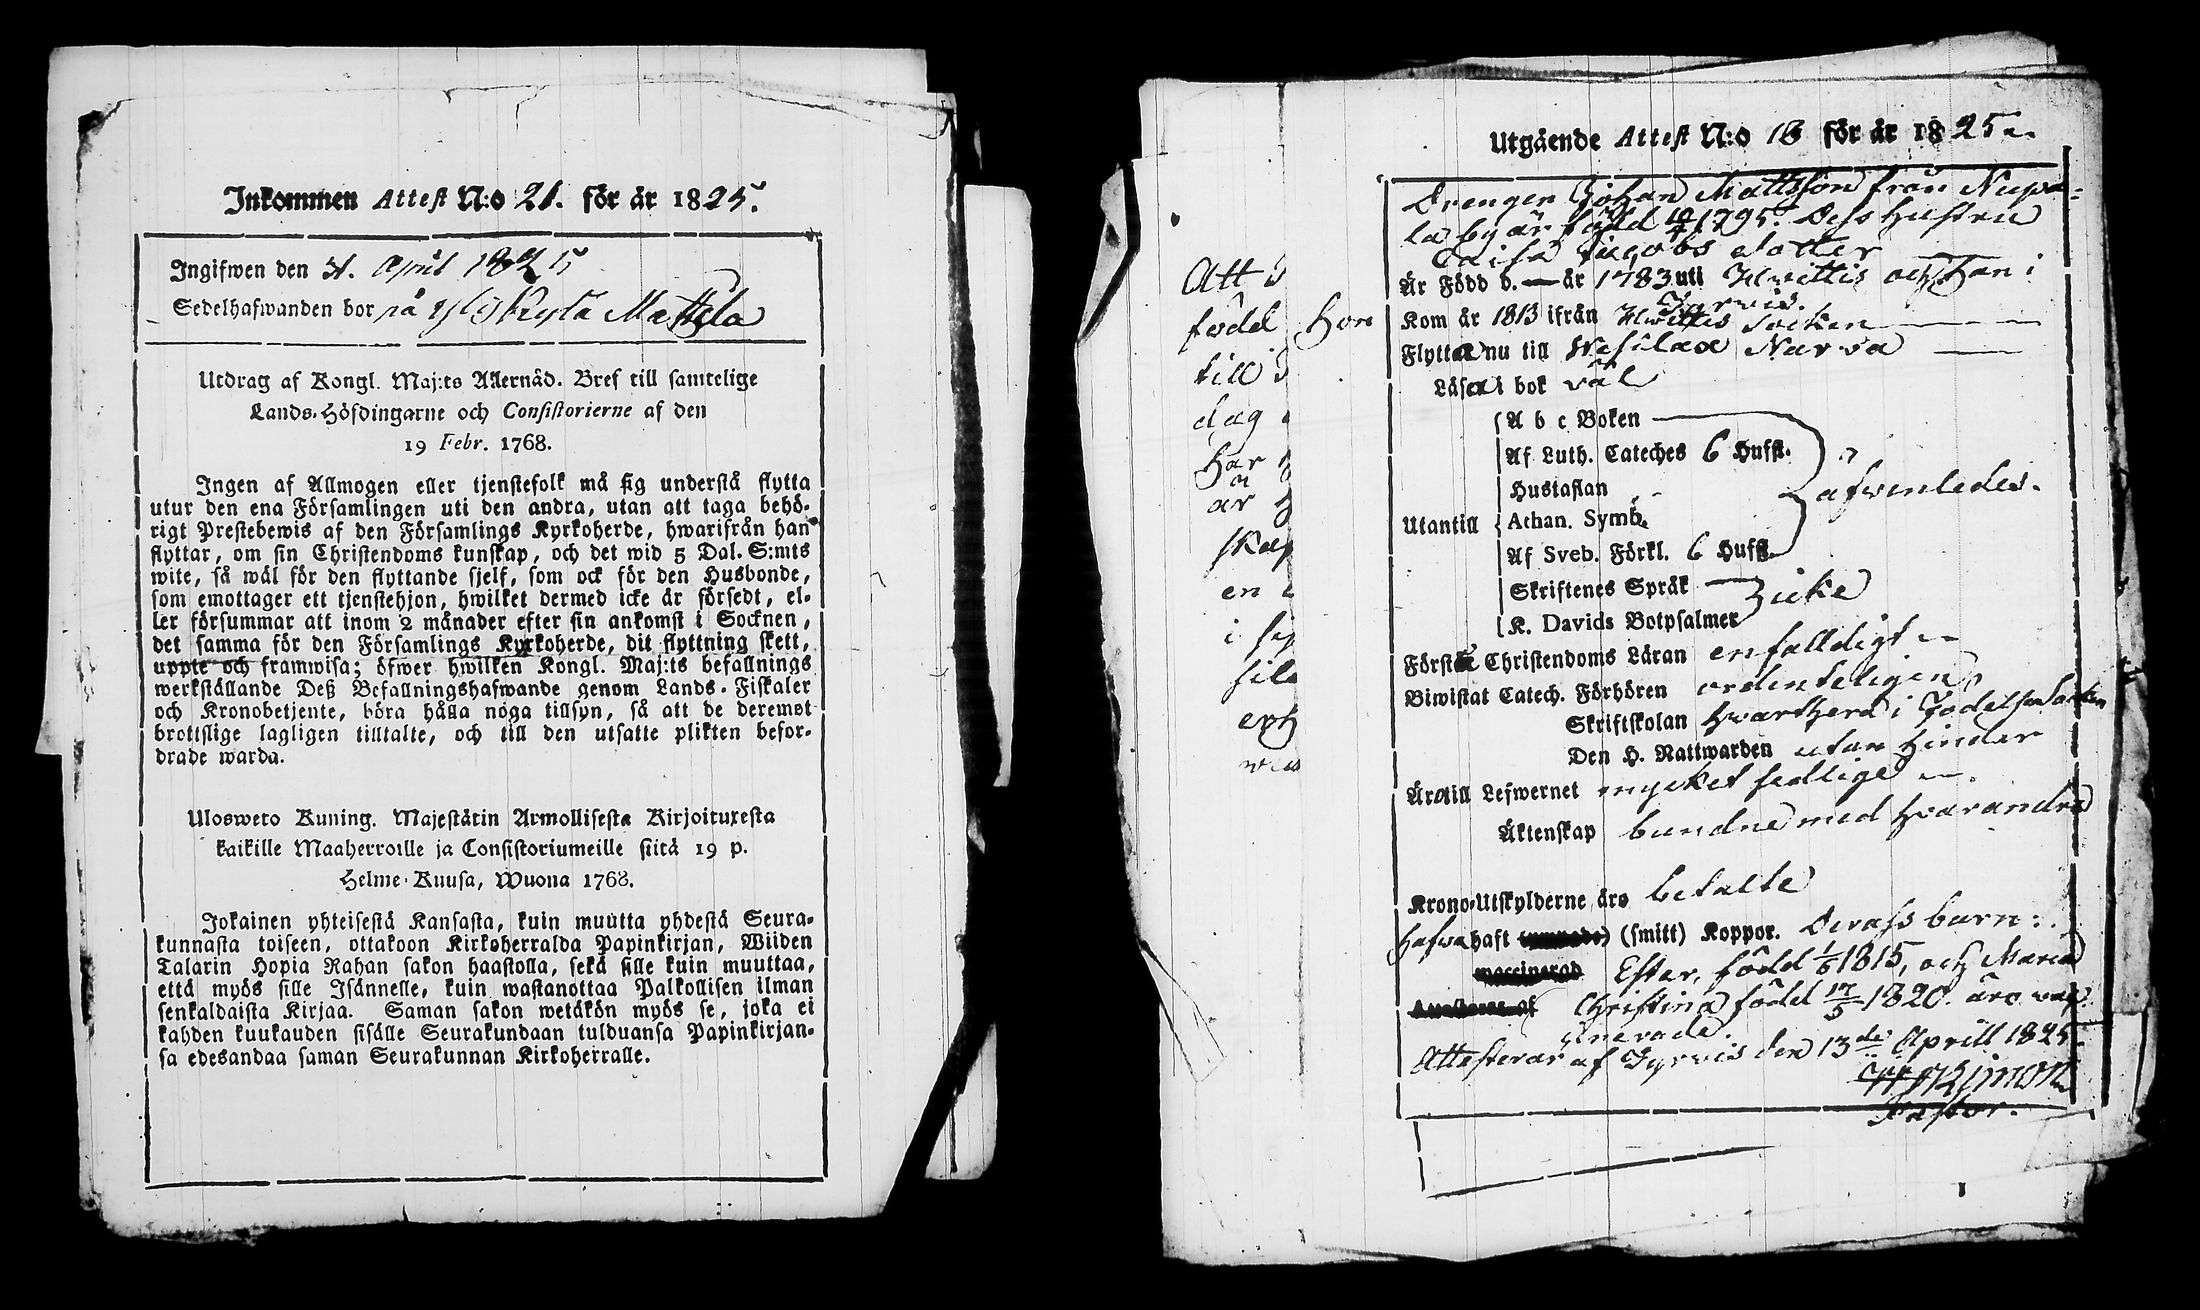 Inkommen Attest N:o 21. för år 1825.
Ingifwen den April 1825
Sedelhafwanden bor på Mattela
Utdrag af Kongl. Maj:ts Allernåd. Bref till samtelige
Lands-Höfdingarne och Consistorierne af den
19 Febr. 1768.
Ingen af Allmogen eller tjenstefolk må sig understå flytta
utur den ena Församlingen uti den andra, utan att taga behö-
rigt Prestebewis af den Församlings Kyrkoherde, hwarifrån han
flyttar, om sin Christendoms kunskap, och det wid 5 Dal. S:mts
wite, så wäl för den flyttande sjelf, som ock för den Husbonde,
som emottager ett tjenstehjon, hwilket dermed icke är försedt, el-
ler försummar att inom 2 månader efter sin ankomst i Socknen,
det samma för den Församlings Kyrkoherde, dit flyttning skett,
uppte och framwisa; öfwer hwilken Kongl. Maj:ts befallnings
werkställande Deß Befallningshafwande genom Lands-Fiskaler
och Kronobetjente, böra hålla noga tillsyn, så att de deremot
brottslige lagligen tilltalte, och till den utsatte plikten befor-
drade warda.
Ulosweto Kuning. Majestätin Armollisesta Kirjoituxesta
kaikille Maaherroille ja Consistoriumeille siitä 19 p.
Helme-Kuusa, Wuona 1768.
Jokainen yhteisestä Kansasta, kuin muutta yhdestä Seura-
kunnasta toiseen, ottakoon Kirkoherralda Papinkirjan, Wiiden
Talarin Hopia Rahan sakon haastolla, sekä sille kuin muuttaa,
että myös sille Isännelle, kuin wastanottaa Palkollisen ilman
senkaldaista Kirjaa. Saman sakon wetäkön myös se, joka ei
kahden kuukauden sisälle Seurakundaan tulduansa Papinkirjan-
sa edesandaa saman Seurakunnan Kirkoherralle.
Att
född
till
dag
har
är
skap
en
i
Hon
Utgående Attest N:o 18 för år 1825.
Drengen Johan Mattsson från Nupa-
la by är född 1795. Dess hustru
Caisa Jacobs dotter
Är Född d. — år 1783 uti Hwittis och han i Tyrwis.
Kom år 1813 ifrån Hwittis Socken
Flytta nu till Wesilax Narva
Läsa i bok väl
Utantill
A b c Boken
Af Luth. Cateches 6 Hufst.
Hustaflan
Athan. Symb.
Af Sveb. Förkl. 6 Hufst.
afwenledes.
Skriftenes Språk
K. Davids Botpsalmer
icke
Förstå Christendoms Läran enfalldigt
Biwistat Catech. Förhören ordenteligen
Skriftskolan hwarthera i Födelse Socken
Den H. Nattwarden utan hinder
Äro till Lefwernet mycket sedlige
Äktenskap bundne med hvarandra
Krono-Utskylderne äro betalte
Hafwa haft (smitt) Koppor. Derass barn:
Ester, född 1/6 1815, och Maria
Christina född 17/5 1820. äro vac-
cinerade.
Attesterar af Tyrvis den 13de Aprill 1825.
Pastor.